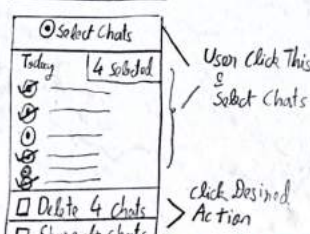 Select Chats
Today
4 Selected
User Click This
&
Select Chats
Delete 4 Chats
Click Desired
Action
Share 4 chats